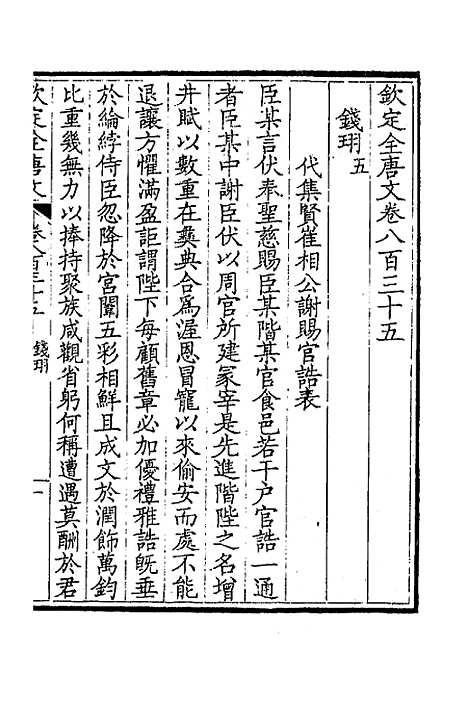 欽定全唐文卷八百三十五
錢珝五
代集賢崔相公謝賜官誥表
臣某言伏奉聖慈賜臣某階某官食邑若干戶官誥一通
者臣某中謝臣伏以周官所建冢宰是先進階陛之名增
井賦以數重在彝典合爲渥恩冒寵以來偷安而處不能
退讓方懼滿盈詎謂陛下每顧舊章必加優禮雅誥旣垂
於綸綍侍臣忽降於宮闈五彩相鮮且成文於潤飾萬鈞
比重幾無力以捧持聚族咸觀省躬何稱遭遇莫酬於君
欽定全唐文 卷八百三十五 錢珝 一